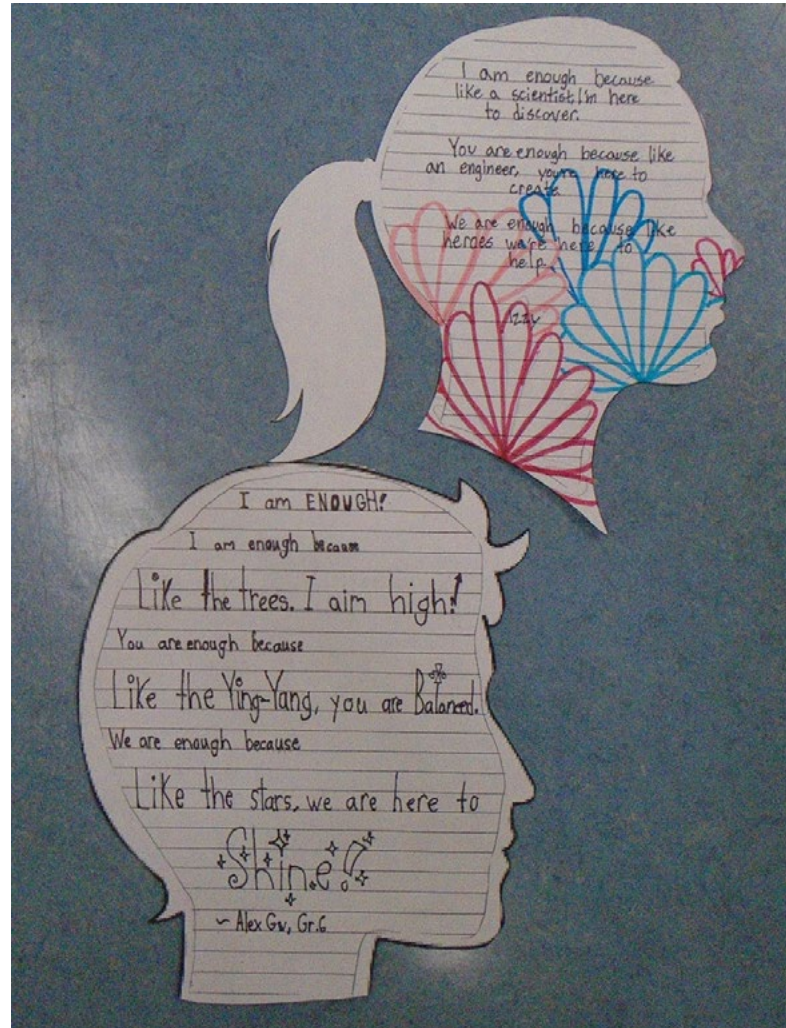 I am enough because
like a scientist I'm here
to discover.
You are enough because like
an engineer, you're here to
create
We are enough because like
heroes we're here to
help.
Izzy
I am ENOUGH!
I am enough because
Like the trees. I aim high!
You are enough because
Like the Ying-Yang, you are Balanced.
We are enough because
Like the stars, we are here to
Shine!
~ Alex Gw, Gr.6